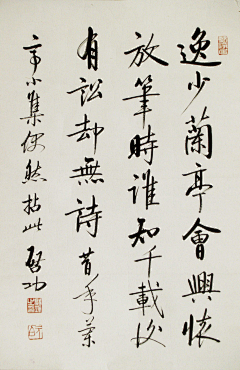 逸少蘭亭會興懷
放筆時誰知千載後
有訟却無詩 昔年蘭
亭小集 然拈此 啟功